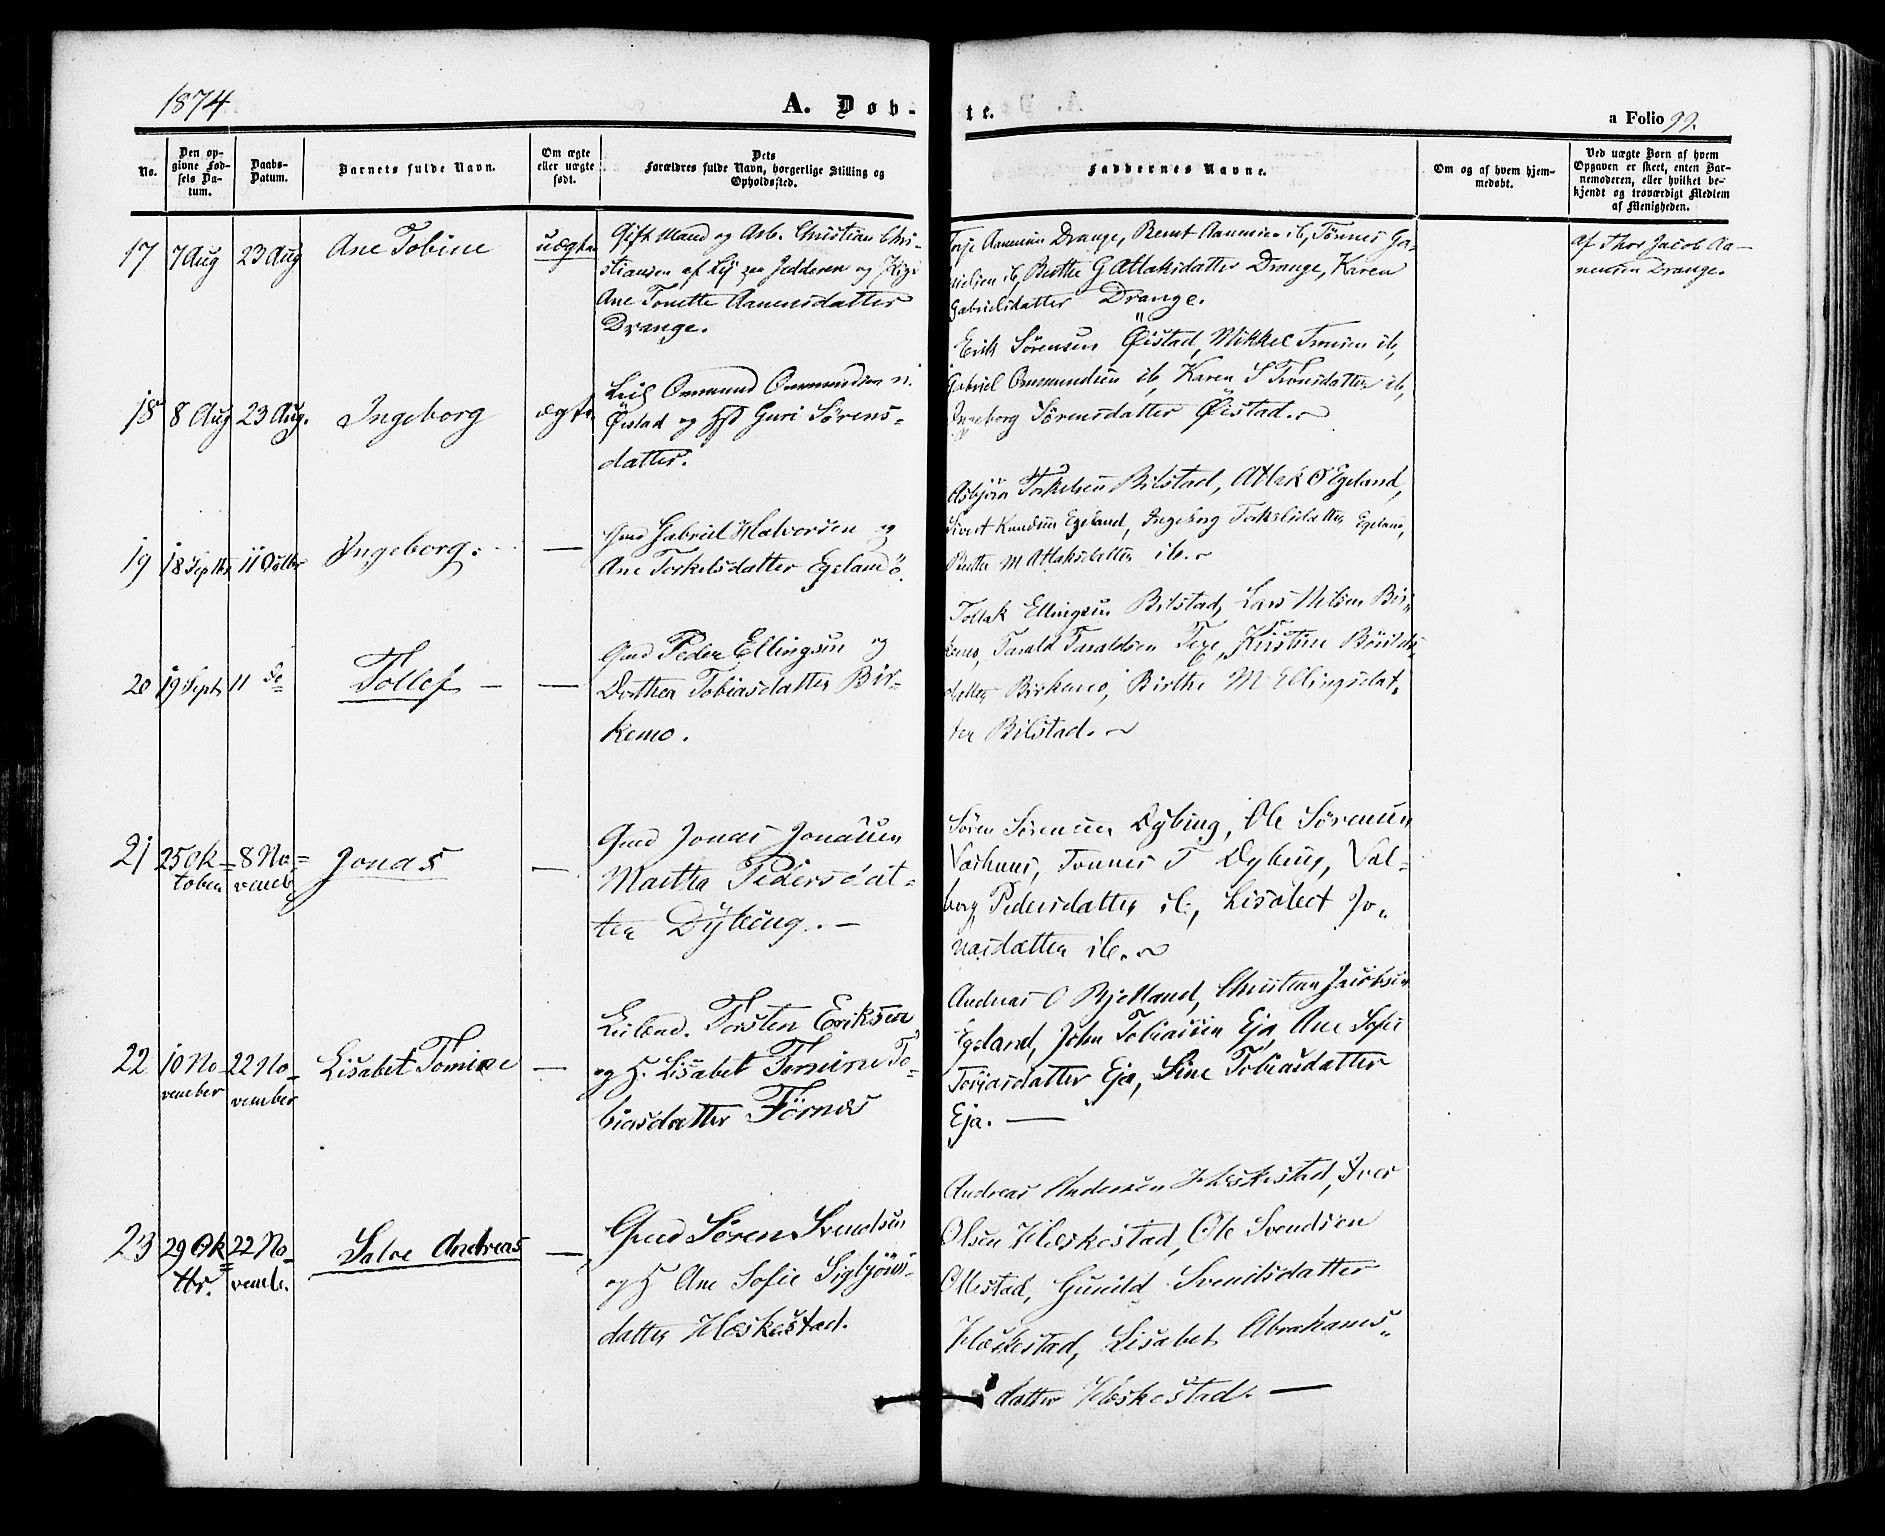 1874
A. Døb-
te.
a Folio 99.
No.
Den op-
givne Fød-
sels Da-
tum.
Daabs-
Datum.
Barnets fulde Navn.
Om ægte
eller uægte
født.
Dets
Forældres fulde Navn, borgerlige Stilling og
Opholdssted.
Faddernes Navne.
Om og af hvem hjem-
medøbt.
Ved uægte Børn af hvem
Opgaven er skeet, enten Bar-
nemoderen, eller hvilket be-
kjendt og troværdigt Medlem
af Menigheden.
17 7 Aug 23 Aug Ane Tobine uægte
Gift Mand og Arb. Christian Chri-
stiansen af Lij paa Jedderen og Pige
Ane Tonette Aanensdatter
Drange.
Terje Aanensen Drange, Bernt Aanensen ib, Tønnes Ga-
brielsen ib, Berthe G Atlaksdatter Drange, Karen
Gabrielsdatter Drange.
af Thor Jacob Aa-
nensen Drange.
18 8 Aug 23 Aug. Ingeborg ægte
Leil Ommund Ommundsen
Øistad og H Guri Sørens-
datter.
Erik Sørensen Øistad, Mikkel Tønnesen ib,
Gabriel Ommundsen ib, Karen S Tronsdatter ib,
Ingeborg Sørensdatter Øistad.
19 18 Septbr 11 Octbr Ingeborg. —
Gmd Gabriel Halvorsen og
Ane Torkelsdatter Egeland ø.
Asbjørn Torkelsen Bilstad, Atlak O Egeland,
Sivert Knudsen Egeland, Ingeborg Torkelsdatter Egeland,
Berthe M Atlaksdatter ib.
20 19 Sept 11 do Tollef — —
Gmd Peder Ellingsen og
Dorthea Tobiasdatter Bir-
kemo.
Tollak Ellingsen Bilstad, Lars Nilsen Bir-
kemo, Tarald Taraldsen Tege, Kristine Bårds-
datter Birkemo, Birthe M Ellingsdat-
ter Bilstad.
21 25 Ok- 8 No- Jonas —
tober vemb
Gmd Jonas Jonassen
Martha Pedersdat-
ter Dybing. —
Søren Sørensen Dybing, Ole Sørensen
Vashuus, Tønnes T Dybing, Val-
borg Pedersdatter ib, Lisabet Jo-
nasdatter ib.
22 10 No- 22 No- Lisabet Tomine —
vember vember
Leilend. Torsten Eriksen
og H. Lisabet Tomine To-
biasdatter Førnes
Andreas O Bjelland, Christian Jacobsen
Egeland, John Tobiassen Eja, Ane Sofie
Tobiasdatter Eja, Sine Tobiasdatter
Eja. —
23 29 Ok 22 No- Salve Andreas —
tbr. vemb.
Gmd Søren Svendsen
og H Ane Sofie Sigbjørns-
datter Hæskestad.
Andreas Andersen Hæskestad, Iver
Olsen Hæskestad, Ole Svendsen
Ollestad, Gunild Svendsdatter
Hæskestad, Lisabet Abrahams-
datter Hæskestad. —